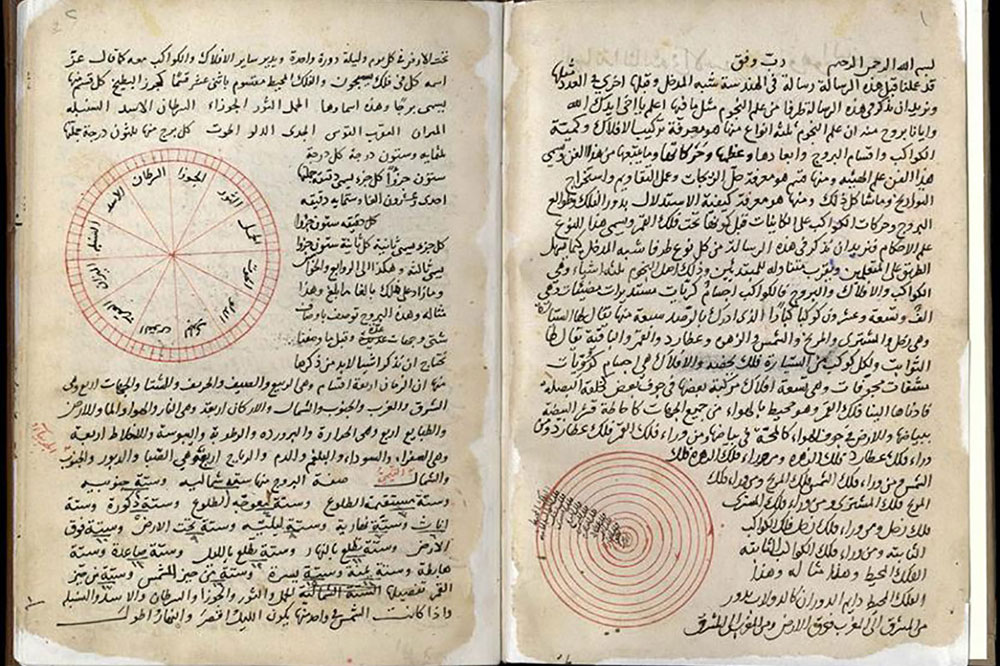 بسم الله الرحمن الرحيم رب وفق
قد عملنا قبل هذه الرسالة رسالة في الهندسة شبه المدخل وقبلها اخرى في العدد مثلها
ونريد ان نذكر في هذه الرسالة طرفا من علم النجوم مثل ما فيها اعلم يا اخي ايدك الله
وايانا بروح منه ان علم النجوم ثلثة انواع منها هو معرفة تركيب الافلاك وكمية
الكواكب واقسام البروج وابعادها وعظمها وحركاتها وما يتبعها من هذا الفن ويسمى
هذا الفن علم الهيئه ومنها قسم هو معرفة حل الزيجات وعمل التقاويم واستخراج
التواريخ وما شاكل ذلك ومنها هو معرفة كيفية الاستدلال بدور الفلك وطوالع
البروج وحركات الكواكب على الكاينات قبل كونها تحت فلك القمر ويسمى هذا النوع
علم الاحكام فنريد ان نذكر في هذه الرسالة من كل نوع طرفا شبه المدخل كيما يسهل
الطريق على المتعلمين ويقرب تناوله للمبتدئين وذلك اصل النجوم ثلثة اشياء وهي
الكواكب والافلاك والبروج فالكواكب اجسام كريات مستديرات مضيئات وهي
الف وتسعة وعشرون كوكبا كبارا الذي ادرك بالرصد سبعة منها تقال لها السيارة
وهي زحل والمشترى والمريخ والشمس والزهرة وعطارد والقمر والباقية تقال لها
الثابتات ولكل كوكب من السيارة فلك يخصه والافلاك هي اجسام كرويات
مشفات مجوفات وهي تسعة افلاك مركبة بعضها في جوف بعض كحلقة البصله
فادناها الينا فلك القمر وهو محيط بالهواء من جميع الجهات كاحاطة قشر البيضة
ببياضها والارض في جوف الهواء كالمحة في بياضها ومن وراء فلك القمر فلك عطارد ومن
وراء فلك عطارد فلك الزهرة ومن وراء فلك الزهرة فلك
الشمس ومن وراء فلك الشمس فلك المريخ ومن وراء فلك
المريخ فلك المشترى ومن وراء فلك المشترى
فلك زحل ومن وراء فلك زحل فلك الكواكب
الثابته ومن وراء فلك الكواكب الثابته
الفلك المحيط وهذا مثاله وهذا
الفلك المحيط دايم الدوران كالدولاب يدور
من المشرق الى المغرب فوق الارض ومن المغرب الى المشرق
تحت الارض في كل يوم وليلة دورة واحدة ويدير ساير الافلاك والكواكب معه كما قال عز
اسمه كل في فلك يسبحون والفلك المحيط مقسوم باثنى عشر قسما كجزر البطيخ كل قسم منها
يسمى برجا وهذه اسماؤها الحمل الثور الجوزاء السرطان الاسد السنبله
الميزان العقرب القوس الجدى الدلو الحوت كل برج منها ثلثون درجة جملتها
ثلثمايه وستون درجة كل درجة
ستون جزؤا كل جزء يسمى دقيقة جملتها
احدى وعشرون الفا وستمايه دقيقه
كل دقيقه ستون جزوا
كل جزء يسمى ثانية كل ثانية ستون جزوا
يسمى ثالثه وهكذا الى الروابع والخوامس
وما زاد على ذلك بالغا ما بلغ وهذا
مثاله وهذه البروج توصف باوصاف
شتى وجهات عديدة وقبل وصفها
نحتاج ان نذكر اشيا لابد من ذكرها
الحمل
الثور
الجوزا
السرطان
الاسد
السنبله
الميزان
العقرب
القوس
الجدي
الدلو
الحوت
منها ان الزمان اربعة اقسام وهي الربيع والصيف والخريف والشتا والجهات اربع وهي
الشرق والغرب والجنوب والشمال والاركان اربعة وهي النار والهواء والماء والارض
والطبايع اربع وهي الحرارة والبرودة والرطوبة واليبوسة والاخلاط اربعة
وهي الصفراء والسوداء والبلغم والدم والرياح اربع وهي الصبا والدبور والجنوب
والشمال صفة البروج منها ستة شماليه وستة جنوبيه
وستة مستقيمة الطلوع وستة معوجة الطلوع وستة ذكورة وستة
اناث وستة نهارية وستة ليلية وستة تحت الارض وستة فوق
الارض وستة تطلع بالنهار وستة تطلع بالليل وستة صاعدة وستة
هابطة وستة يمنة وستة يسرة وستة من حيز الشمس وستة من حيز
القمر تفصيلها الستة الشمالية الحمل والثور والجوزا والسرطان والاسد والسنبله
واذا كانت الشمس في واحدة منها يكون الليل اقصر والنهار اطول